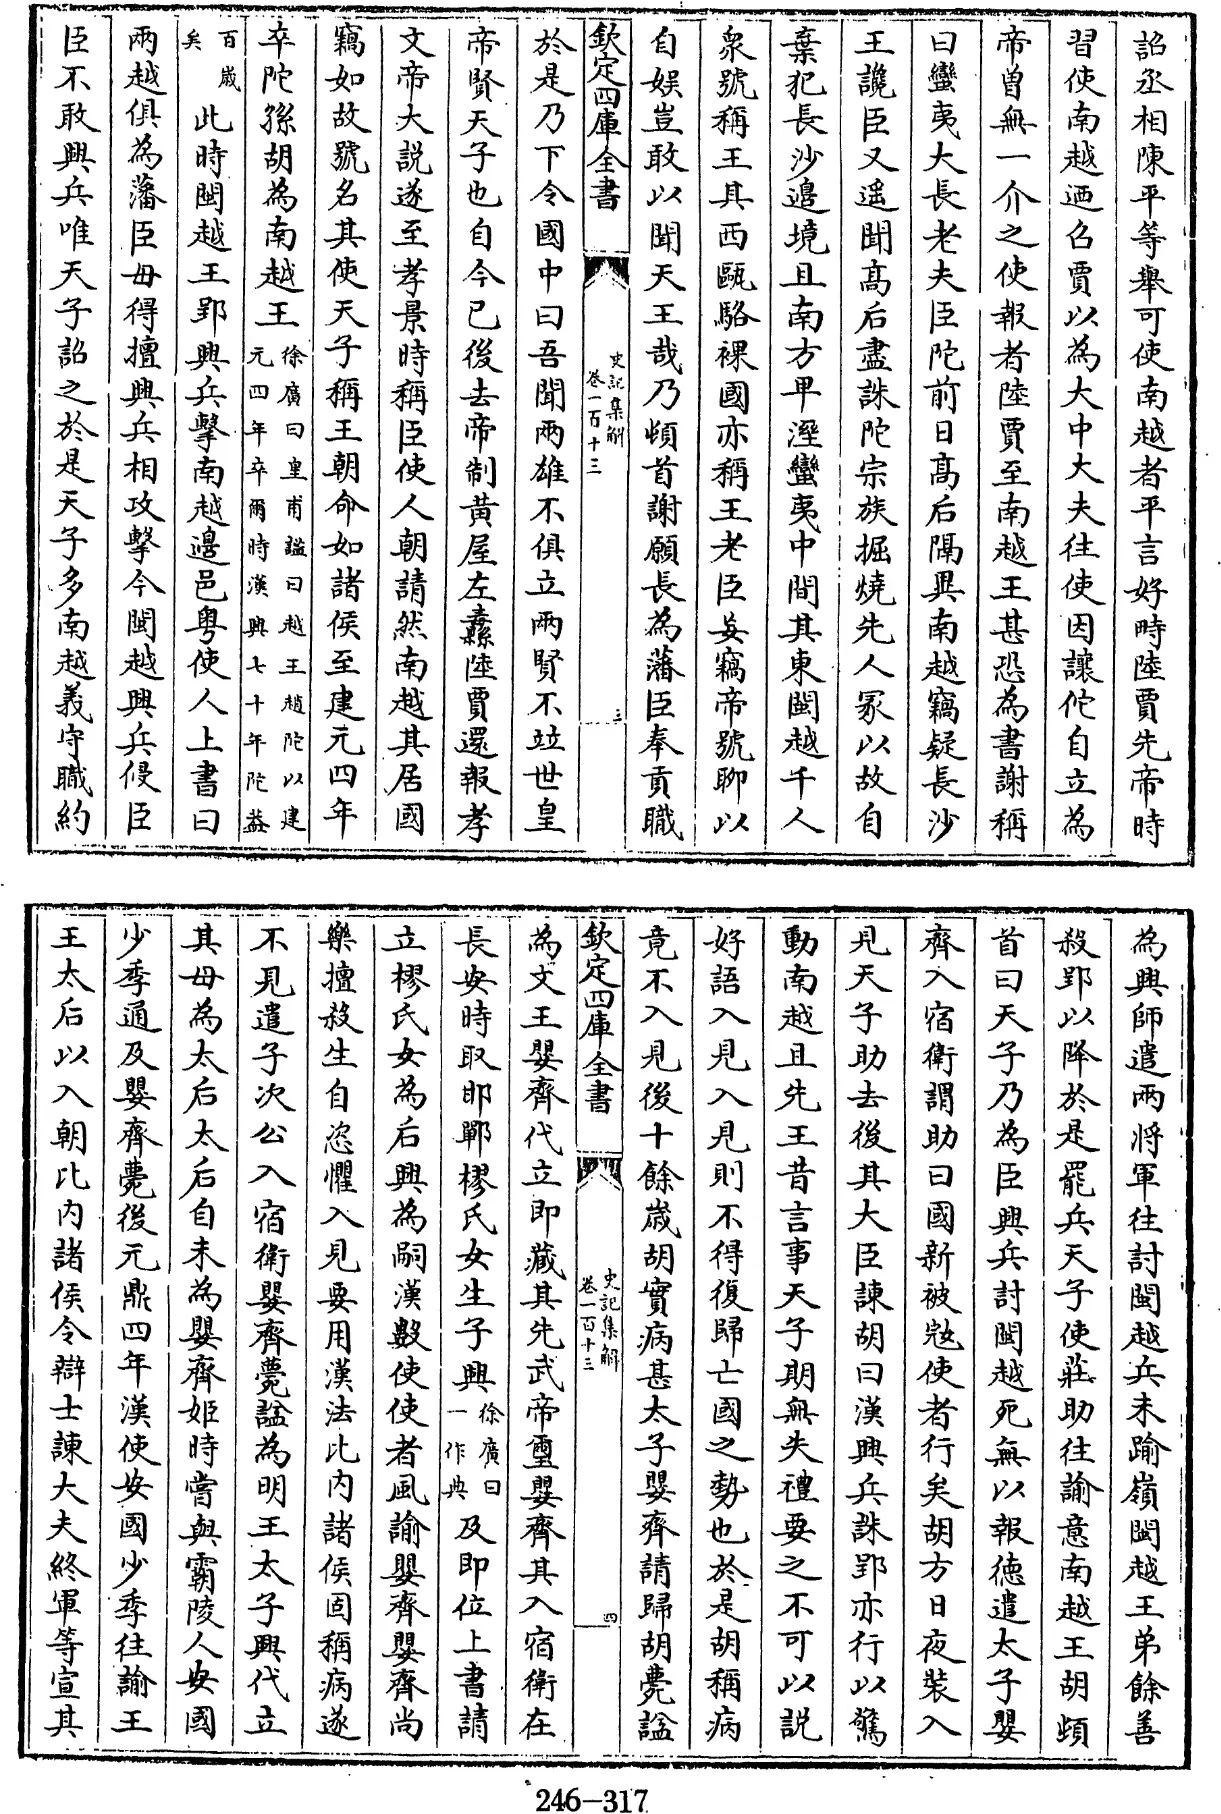 詔丞相陳平等舉可使南越者平言好畤陸賈先帝時
習使南越迺召賈以為大中大夫往使因讓佗自立為
帝曾無一介之使報者陸賈至南越王甚恐為書謝稱
曰蠻夷大長老夫臣陀前日高后隔異南越竊疑長沙
王讒臣又遥聞高后盡誅陀宗族掘燒先人冡以故自
棄犯長沙邉境且南方卑溼蠻夷中間其東閩越千人
衆號稱王其西甌駱裸國亦稱王老臣妄竊帝號聊以
自娛豈敢以聞天王哉乃頓首謝願長為藩臣奉貢職
欽定四庫全書
史記集解
卷一百十三
三
於是乃下令國中曰吾聞兩雄不俱立兩賢不竝世皇
帝賢天子也自今已後去帝制黄屋左纛陸賈還報孝
文帝大説遂至孝景時稱臣使人朝請然南越其居國
竊如故號名其使天子稱王朝命如諸侯至建元四年
卒陀孫胡為南越王
徐廣曰皇甫謐曰越王趙陀以建
元四年卒爾時漢興七十年陀葢
百歲
矣
此時閩越王郢興兵擊南越邉邑粤使人上書曰
兩越俱為藩臣毋得擅興兵相攻擊今閩越興兵侵臣
臣不敢興兵唯天子詔之於是天子多南越義守職約
為興師遣兩將軍往討閩越兵未踰嶺閩越王弟餘善
殺郢以降於是罷兵天子使莊助往諭意南越王胡頓
首曰天子乃為臣興兵討閩越死無以報德遣太子嬰
齊入宿衛謂助曰國新被寇使者行矣胡方日夜裝入
見天子助去後其大臣諫胡曰漢興兵誅郢亦行以驚
動南越且先王昔言事天子期無失禮要之不可以説
好語入見入見則不得復歸亡國之勢也於是胡稱病
竟不入見後十餘歲胡實病甚太子嬰齊請歸胡薨諡
欽定四庫全書
史記集解
卷一百十三
四
為文王嬰齊代立即藏其先武帝璽嬰齊其入宿衛在
長安時取邯鄲樛氏女生子興
徐廣曰
一作典
及即位上書請
立樛氏女為后興為嗣漢數使使者風諭嬰齊嬰齊尚
樂擅殺生自恣懼入見要用漢法比内諸侯固稱病遂
不見遣子次公入宿衛嬰齊薨諡為明王太子興代立
其母為太后太后自未為嬰齊姬時嘗與霸陵人安國
少季通及嬰齊薨後元鼎四年漢使安國少季往諭王
王太后以入朝比内諸侯令辯士諫大夫終軍等宣其
246-317